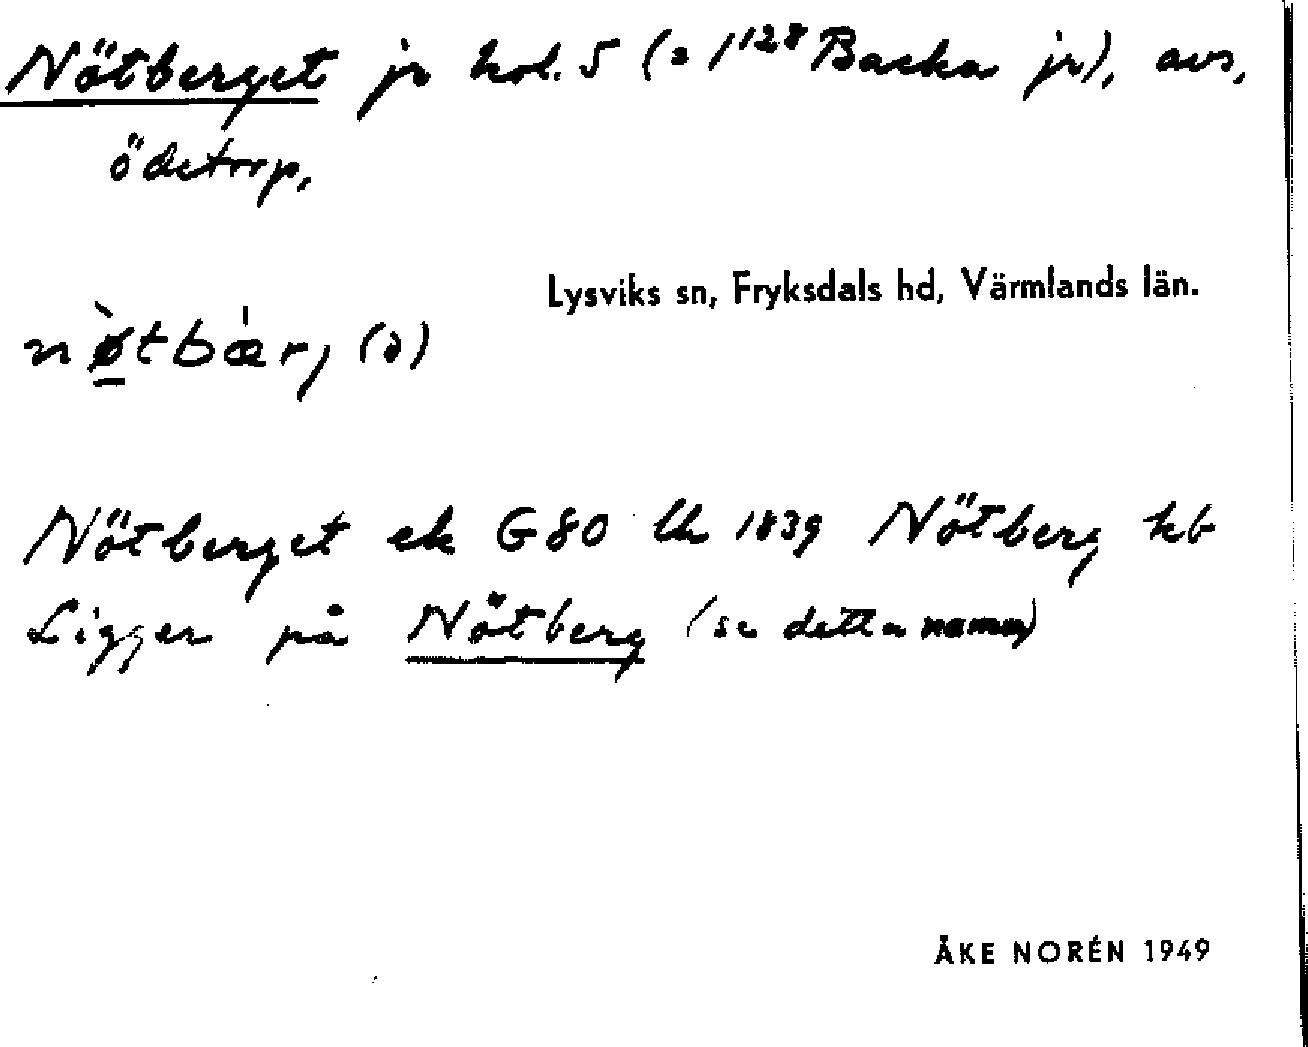 Nötberget jr kol. 5 (= 1¹²⁸ Backa jr), avs,
ödetorp,
Lysviks sn, Fryksdals hd, Värmlands län.
nø̀tbær, (ə)
Nötberget ek G80 lh 1839 Nötberg kb
Ligger på Nötberg (se detta namn)
ÅKE NORÉN 1949